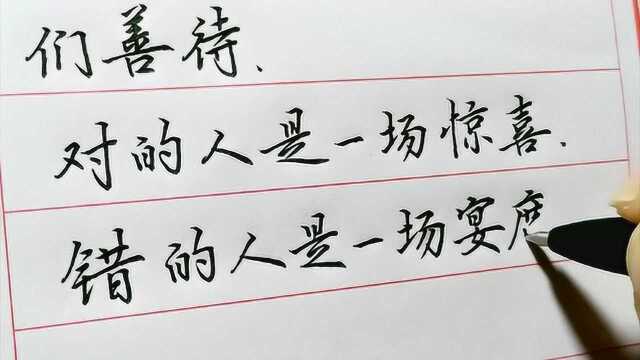 们善待.
对的人是一场惊喜.
错的人是一场宴